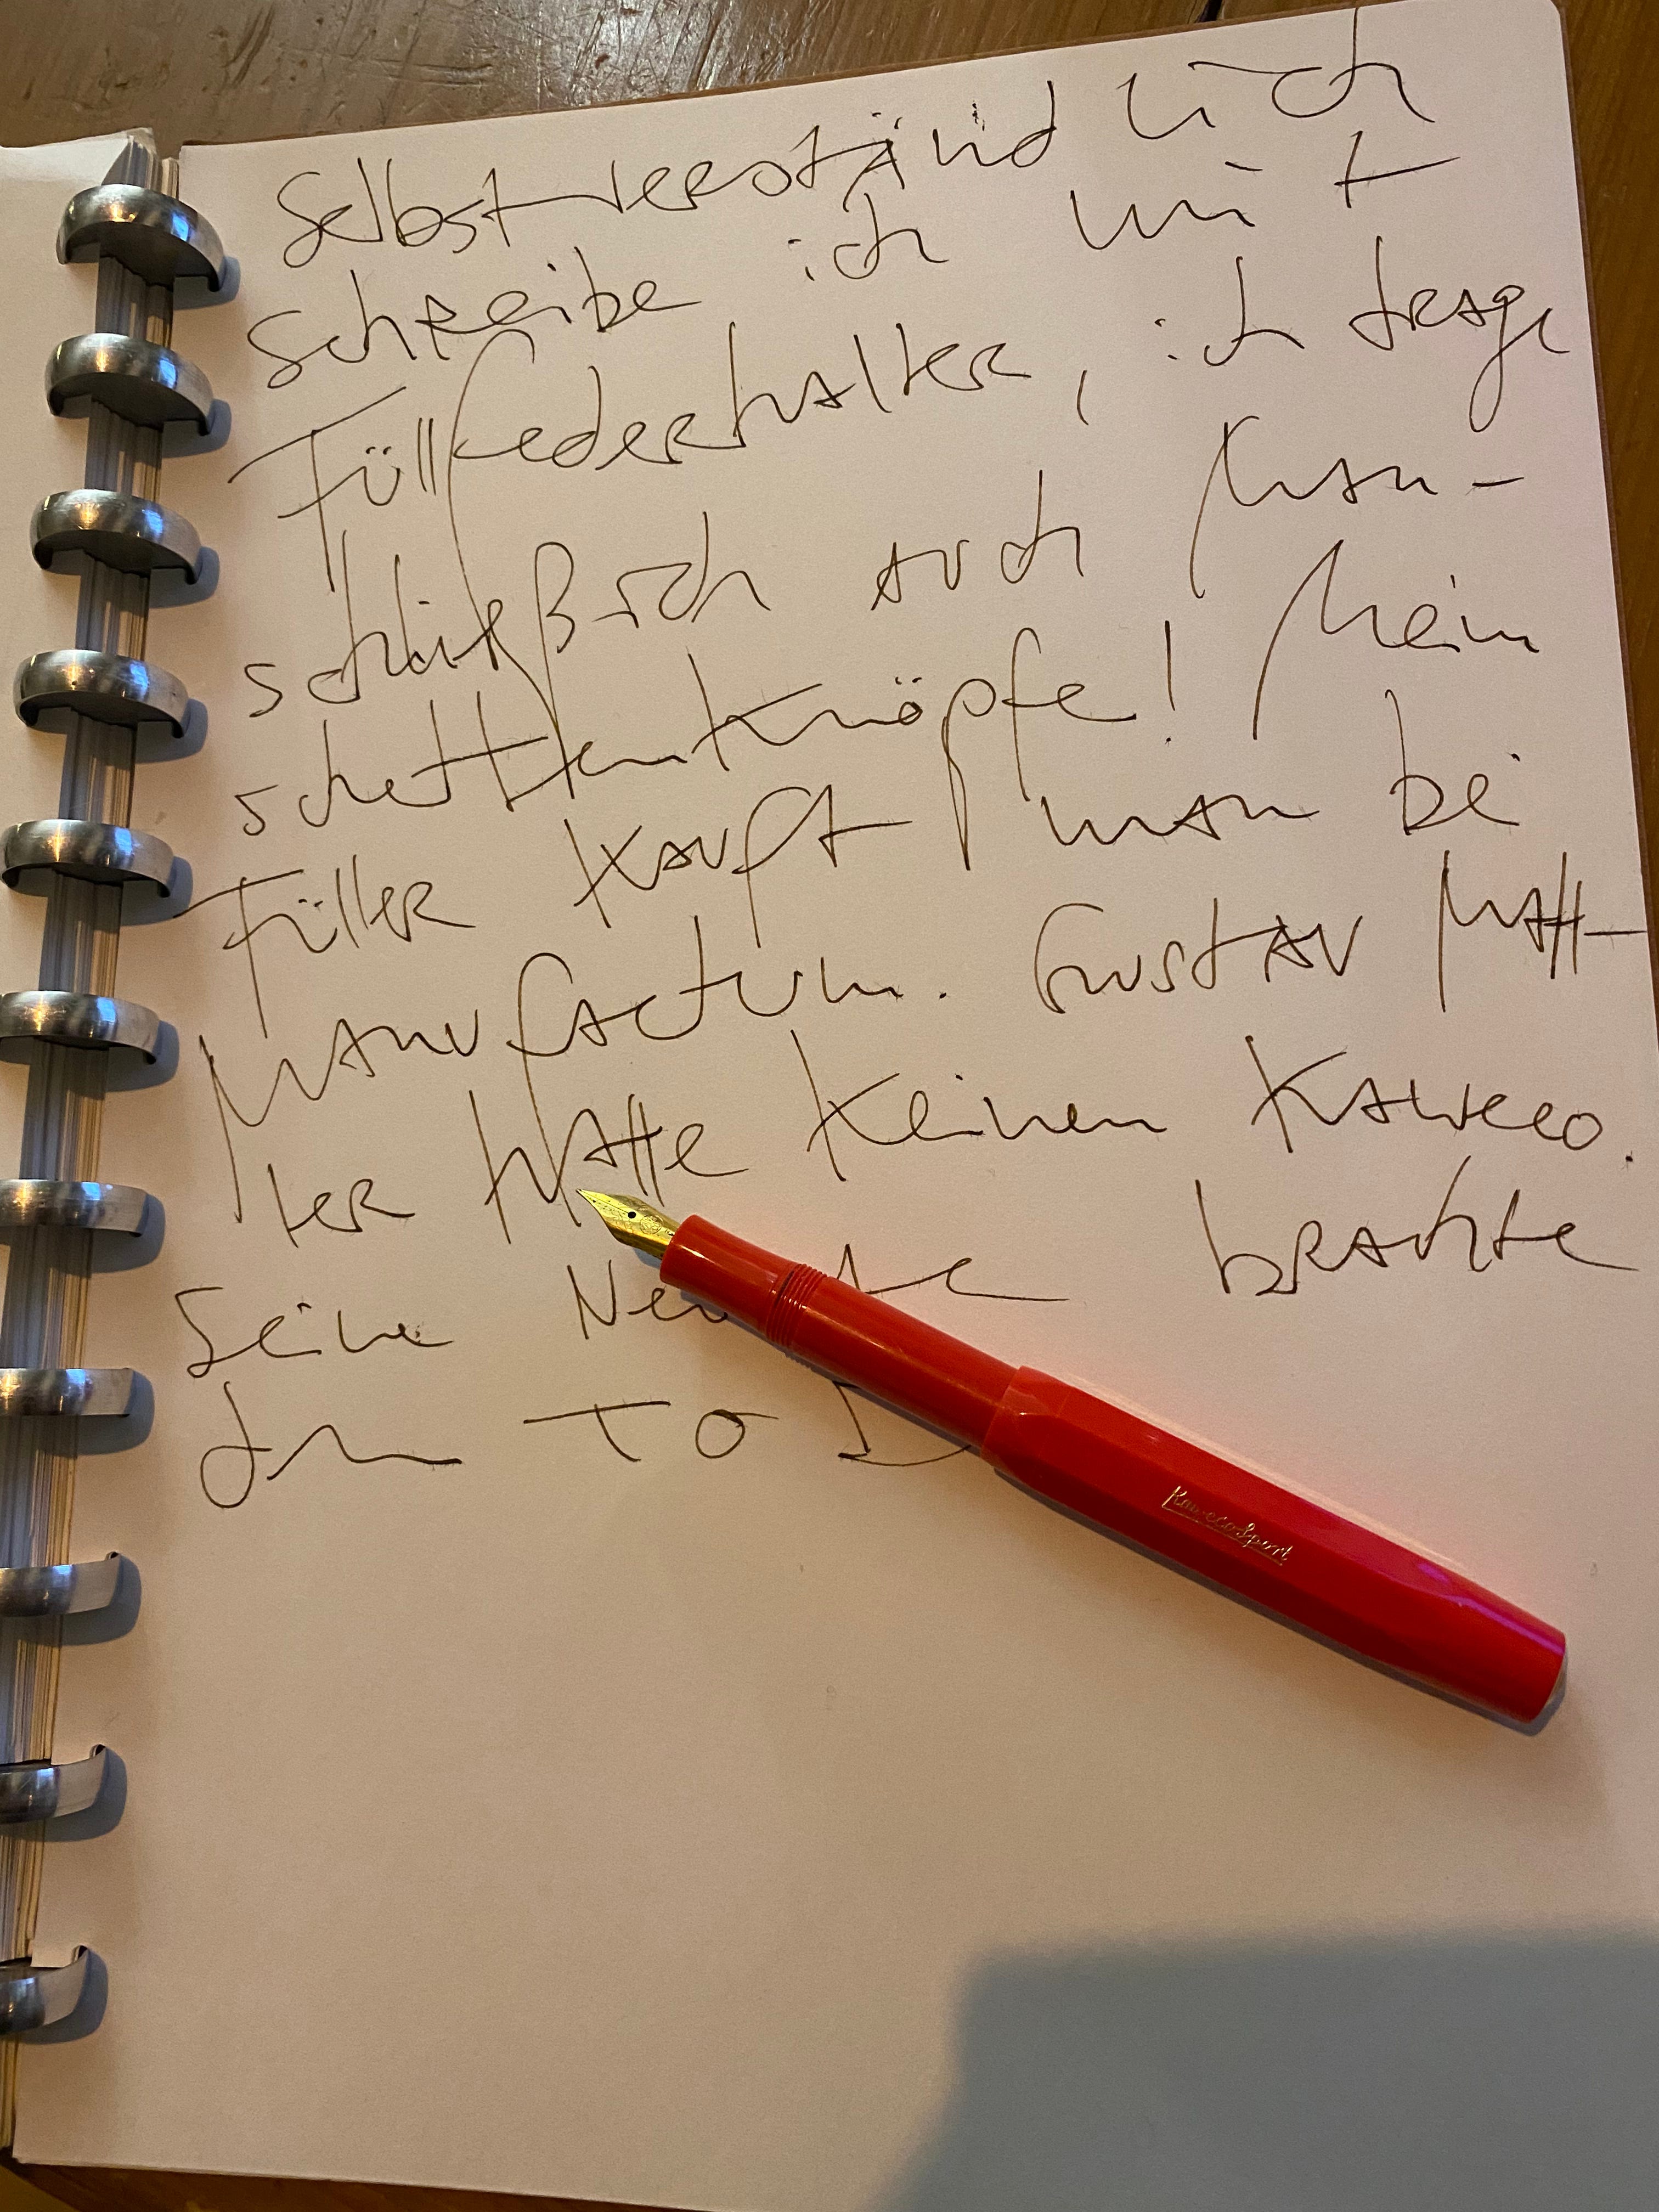 Selbstverständlich
schreibe ich mit
Füllfederhalter, ich trage
schließlich auch Man-
schettenknöpfe! Mein
Füller kauft man bei
Manufactum. Gustav Mah-
ler hatte keinen Kaweco.
Seine brachte
den TOD
Kaweco Sport